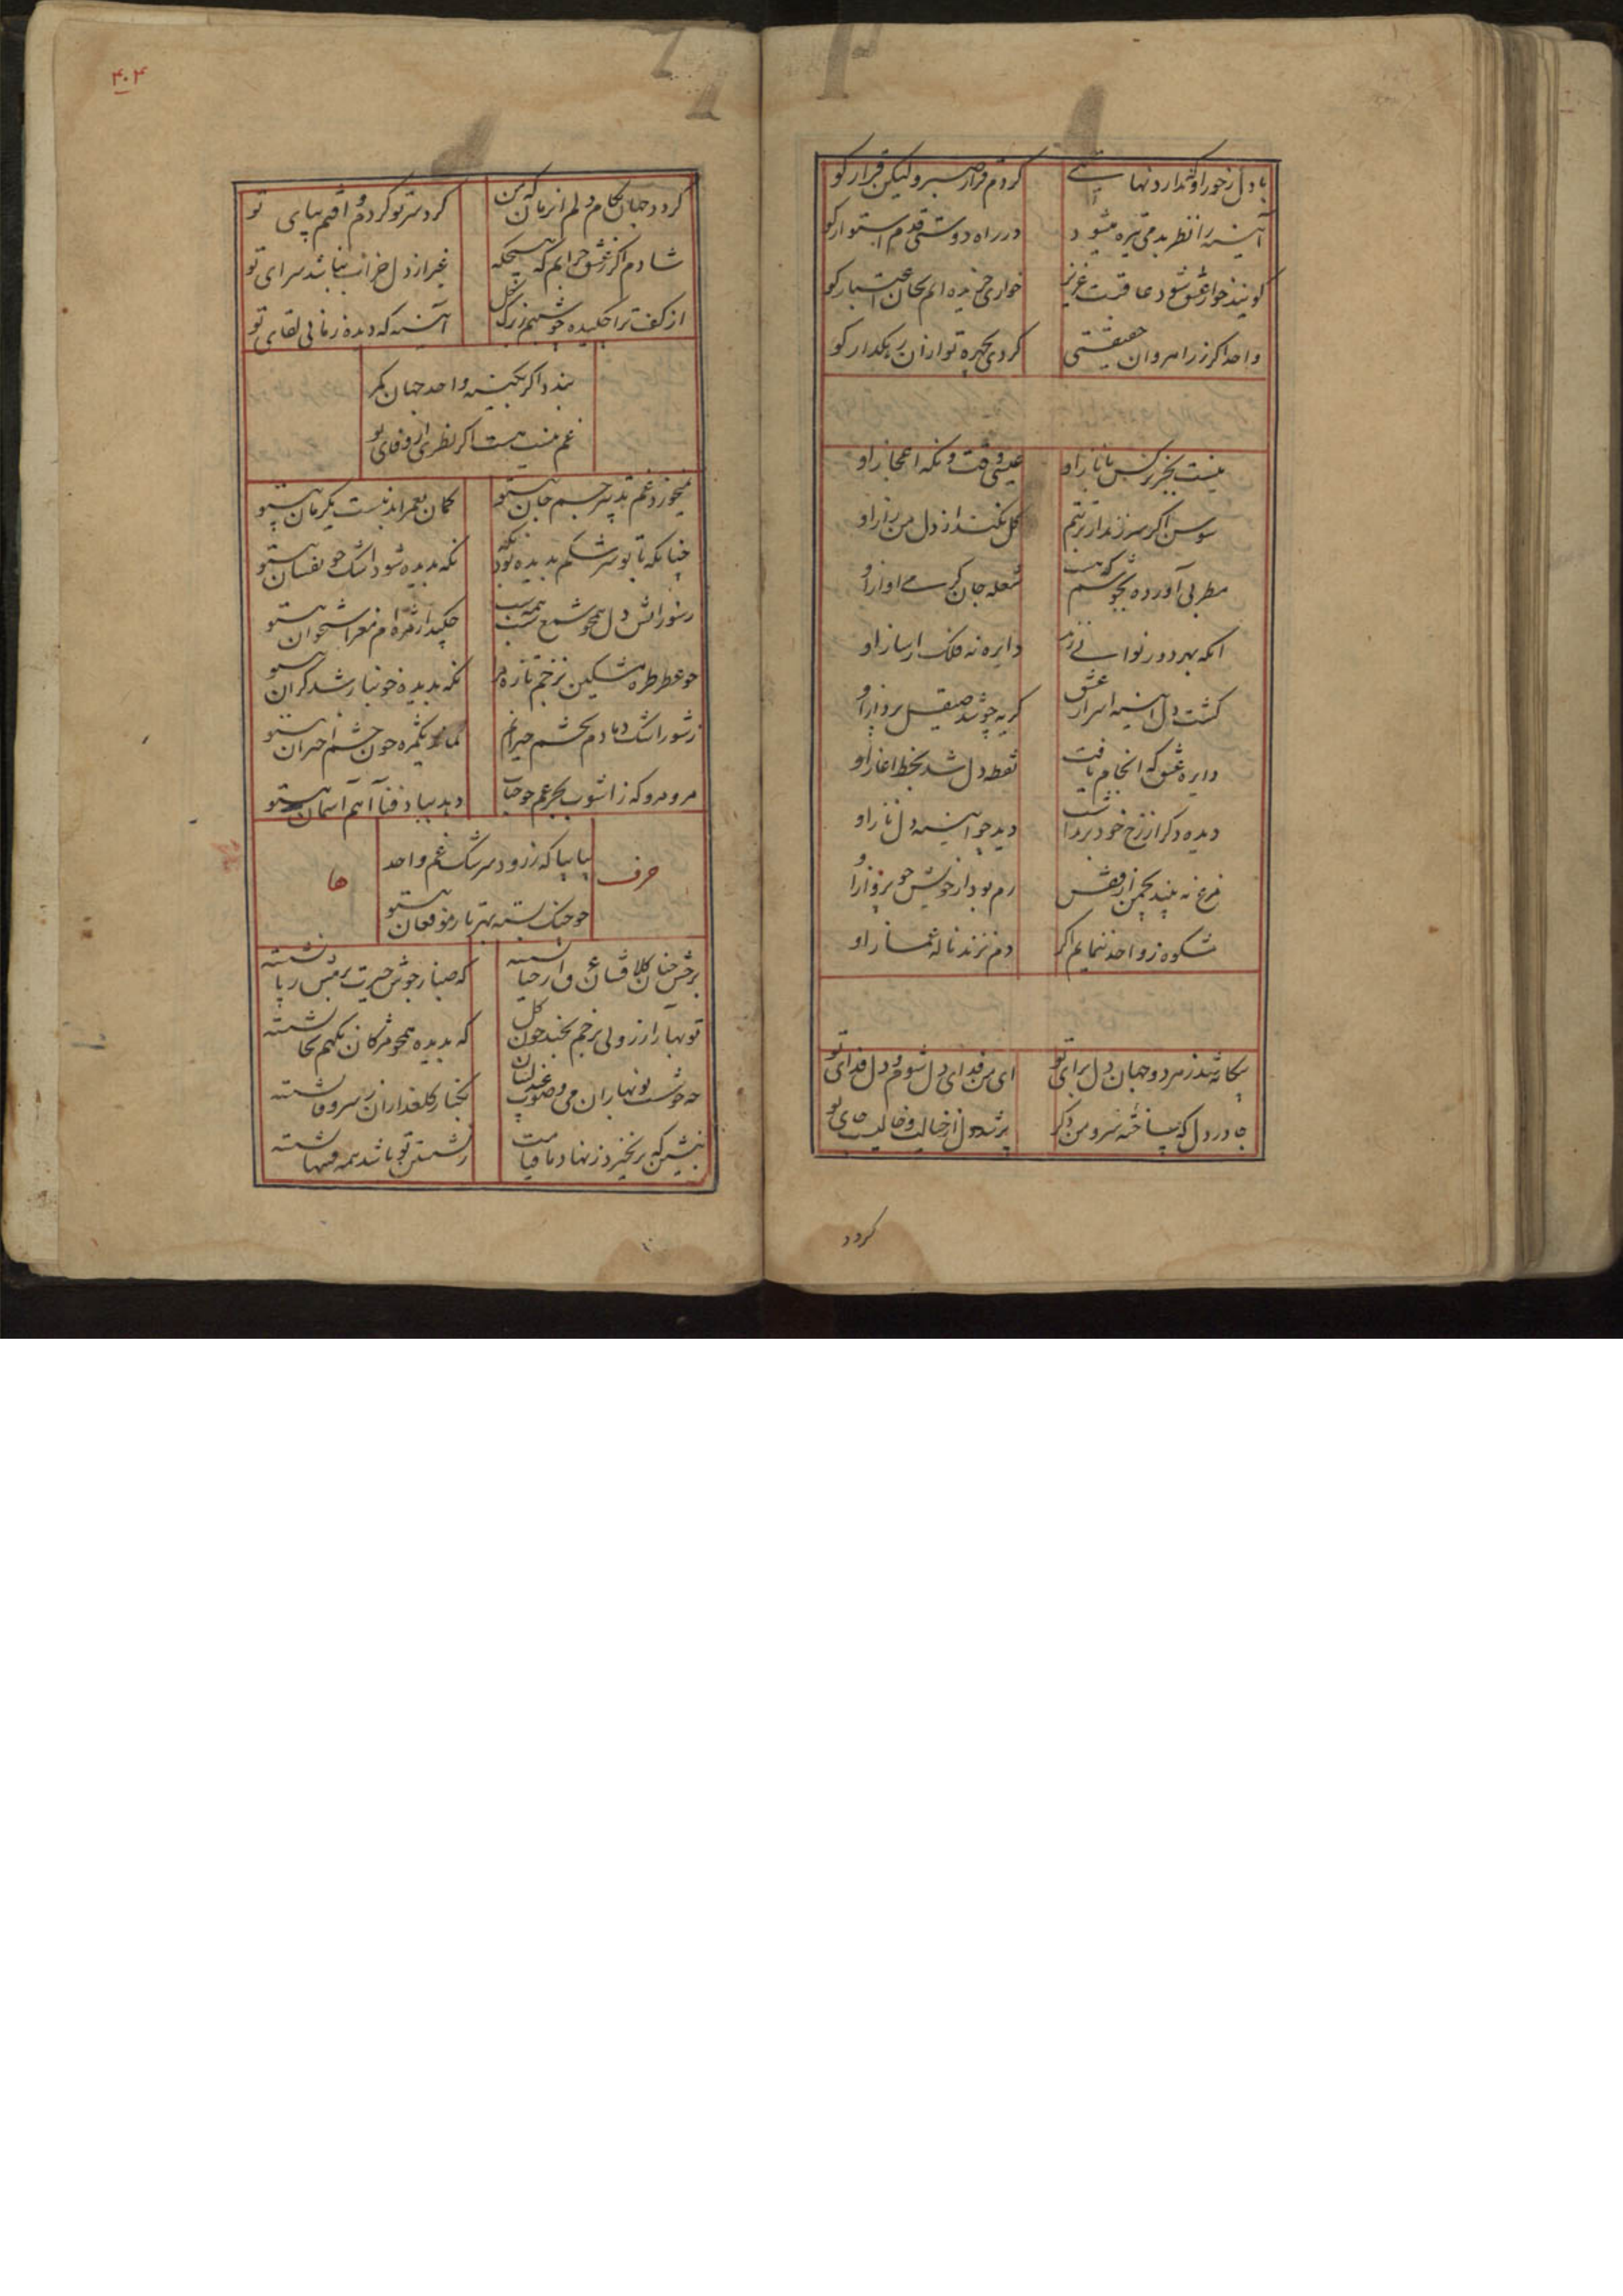 با دل ز خود او ندارد نهایتے کردم قرار صبر و لیکن قرار کو
آینه را نظر بد می تیره میشود در راه دوستی قدم استوار کو
کویند خوار عشق شود عاقبت عزیز خواری خریده ایم بجان اعتبار کو
واحد اکر ز راهروان حقیقتی کردی بچهره تو ازان رهکذار کو
نیست بجز نرکس با ناز او عیسی وقت و نکه اعجاز او
سوسن اکر سر زند از تربتم کل نکند از دل من راز او
مطربی آورده بجوشم که هست شعله جان کرمے آواز او
انکه بهر دور نواے زند دایره نه فلک از ساز او
کشت دل آینه اسرار عشق کریه چو شد صیقل پرداز او
دایره عشق که انجام یافت نقطه دل شد بخط اغاز او
دیده دکر از رخ خود برنداشت دید چو آینه دل ناز او
مرغ نه بیند بچمن از قفس رم بود از خویش چو پرواز او
شکوه ز واحد ننمایم اکر دم نزند ناله غماز او
بیکانه شد ز هر دو جهان دل برای تو ای من فدای دل شوم و دل فدای تو
جا در دل که ساخته سرو من دکر پر شد دل از خیالت و خالیست جای تو
کردد
۴۰۴
کردد جهان بکام دلم انزمان که من کرد سر تو کردم و افتم بپای تو
شادم اکر ز عشق خرابم که هیچکه غیر از دل خراب نباشد سرای تو
از کف ترا چکیده چو شبنم ز برک کل آینه که دیده زمانی لقای تو
بندد اکر بکینه واحد جهان کمر
غم نیست هست اکر نظری از وفای تو
میخورد غم تدبیر جسم جان بیتو کمان بعمر ابد نیست یکزمان بیتو
چنانکه تا بو سرشکم بدیده بود نکه نکه بدیده شود اشک خونفشان بیتو
ز سوز اتش دل همچو شمع همه شب چکید از مژه ام مغز استخوان بیتو
چو عطر طره مشکین بزخم تازه نکه بدیده خونبار شد کران بیتو
ز شور اشک دمادم بچشم حیرانم نماند یکمژه چون چشم اختران بیتو
مرو مرو که ز اشوب بحر غم چو حباب دهد بباد فنا آهم آسمان بیتو
حرف بیا بیا که ز رود سرشک غم واحد ها
چو چنک بسته بهر تار مو فغان بیتو
تو بهار آرزویی بزخم بخند چون کل که بدیده همچو مژکان نکهم بجا نشسته
چه خوشست نوبهاران می و صوت عندلیبان بکنار کلعذاران ز سر وفا نشسته
بنشین که برنخیزد ز نهاد ما قیامت ز نشستن تو باشد همه فتنها نشسته